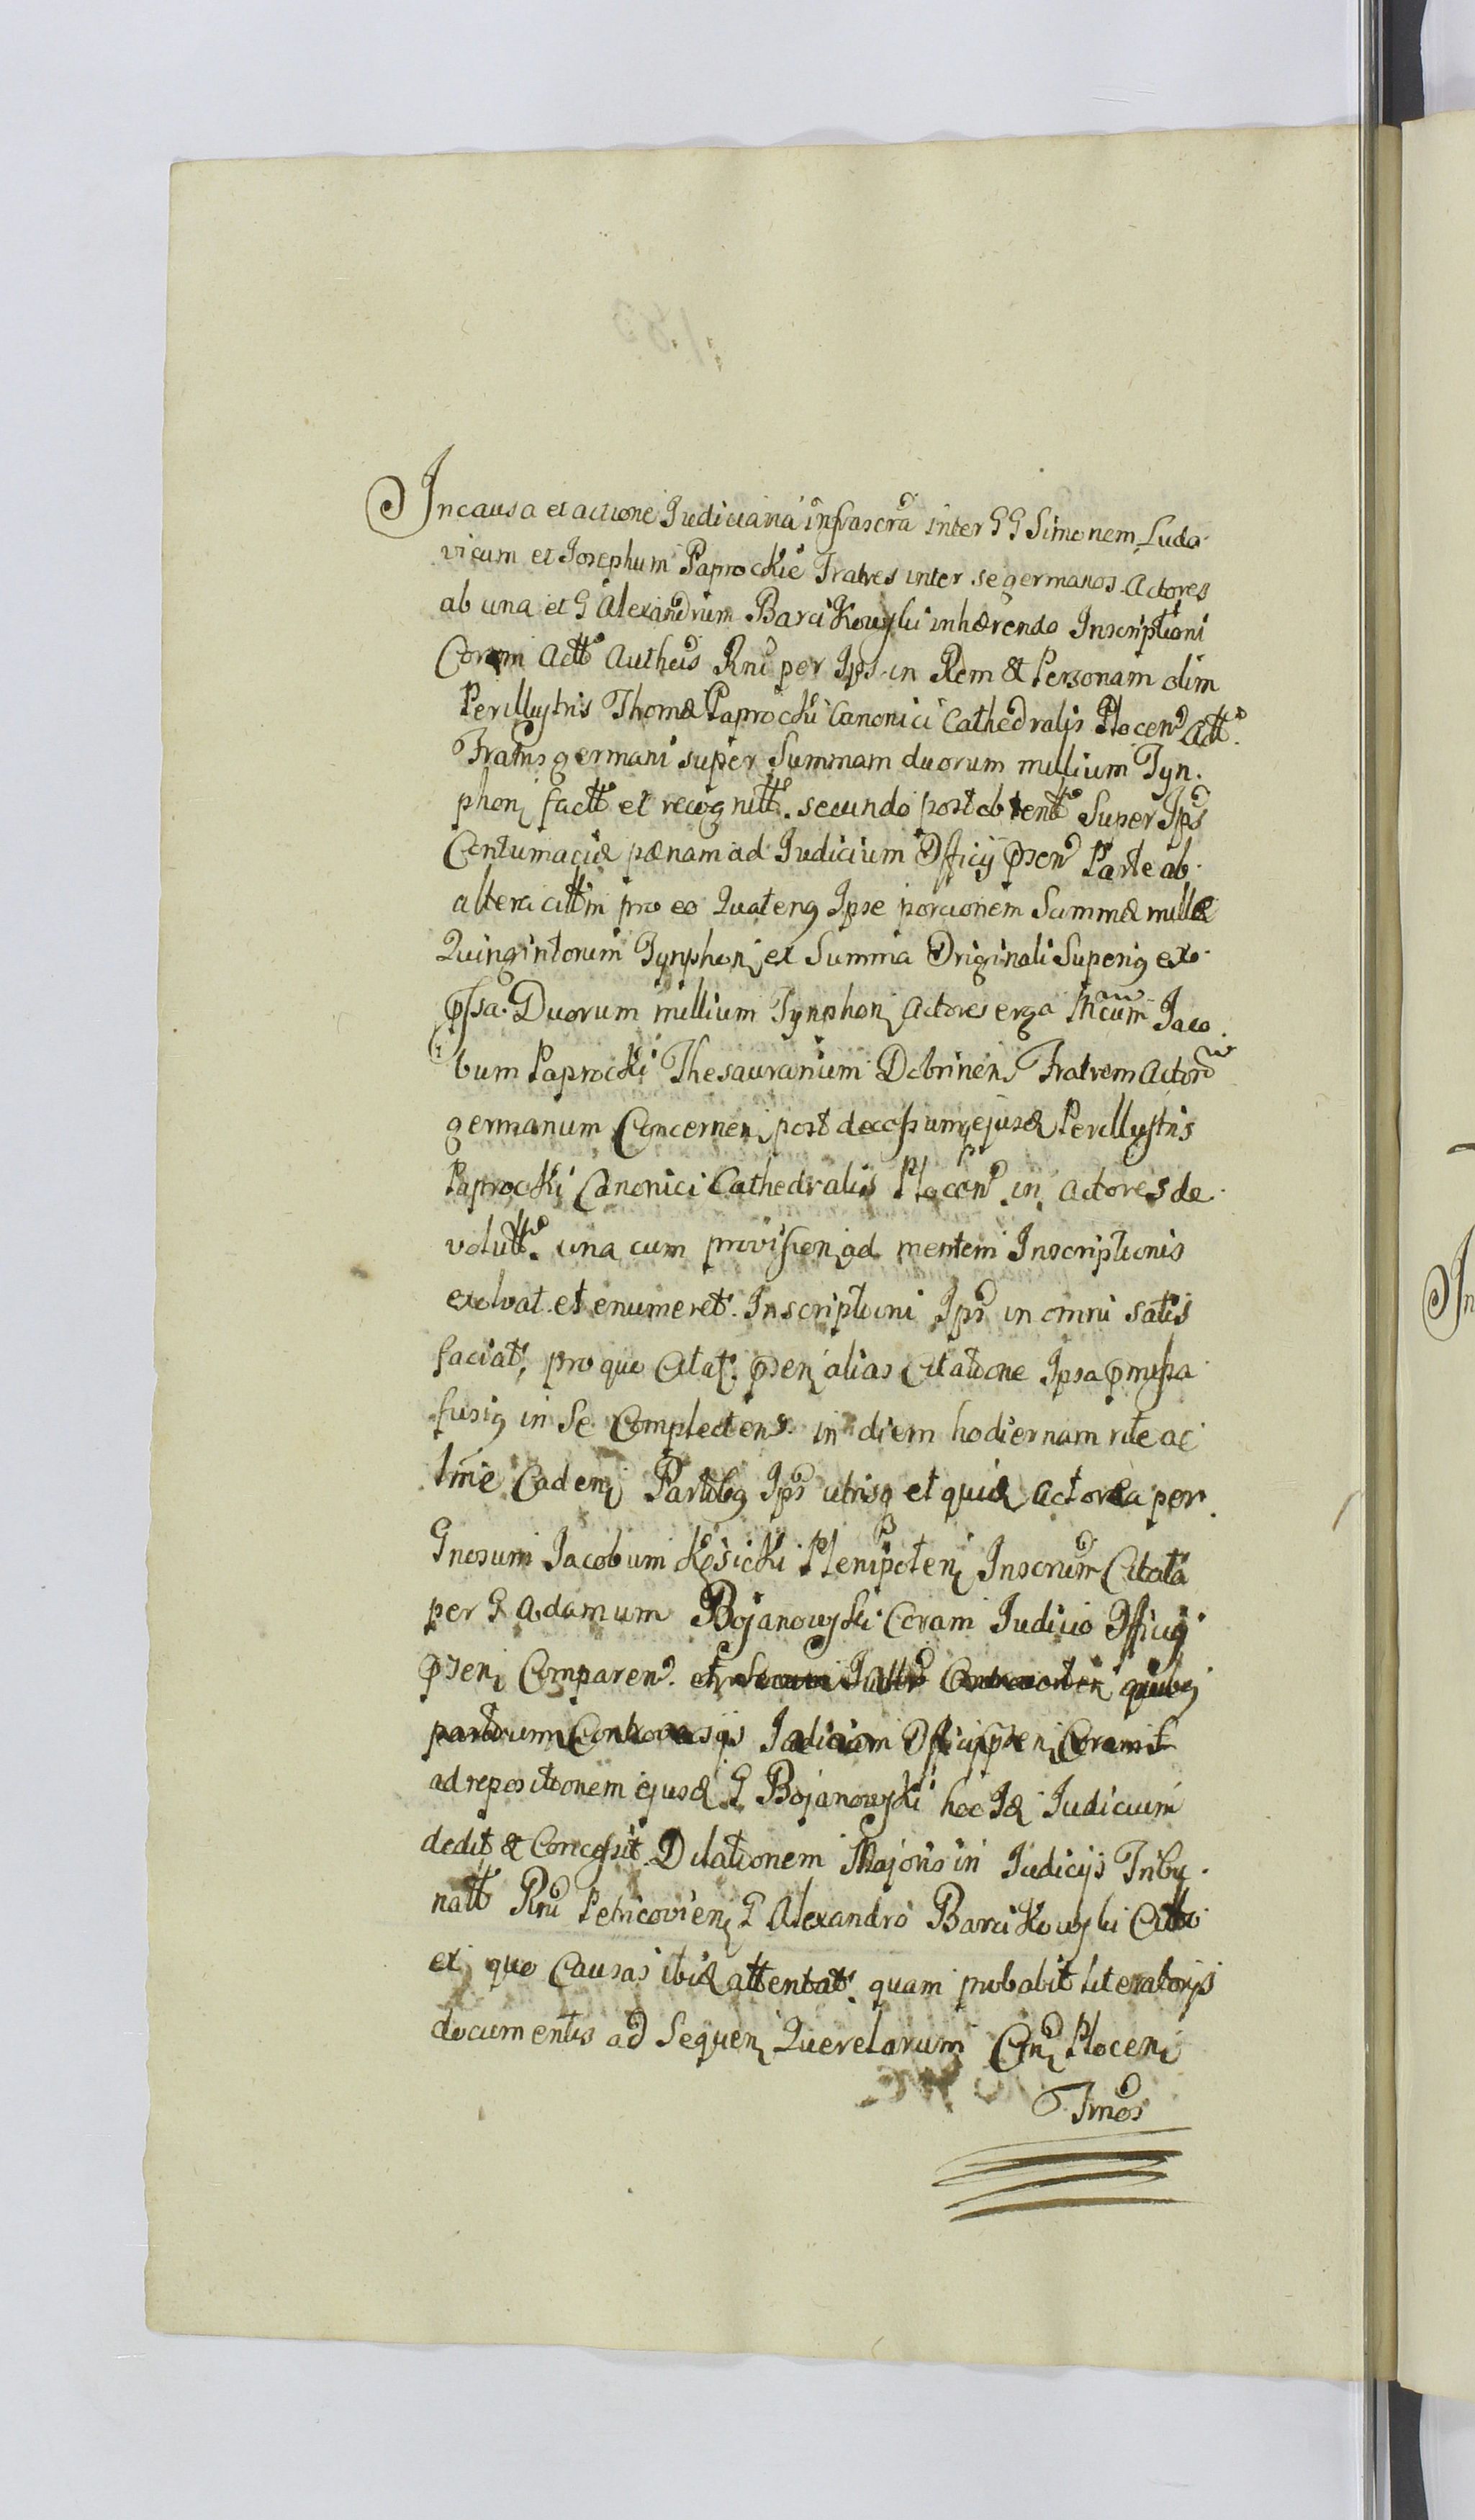 In causa et actione Judiciaria infrascra inter GG Simonem, Ludo-
vicum et Josephum Paprockie Fratres inter se germanos Actores
ab una et G Alexandrum Barcikowski inhærendo Inscriptioni
Coram Actt Authcis Rni per Ips in Rem & Personam olim
Perillustris Thomæ Paprocki Canonici Cathedralis Plocen Actt
Fratris germani super Summam duorum millium Tyn-
phon factt et recognitt. secundo post obtentt Super Ips
Contumaciæ pænam ad Judicium Officij psen Parte ab
altera cittm pro eo Quateng Ipse porcionem Summæ millæ
Quingintorum Tynphon ex Summa Originali Superig ex-
pssa Duorum millium Tynphon Actores erga Mcum Jaco-
bum Paprocki Thesaurarium Dobrinen Fratrem Actor
germanum Concernen post decessum ejusd Perillustris
Paprocki Canonici Cathedralis Plocen in Actores de-
volutt. una cum provision ad mentem Inscriptionis
exolvat et enumeret. Inscriptioni Ips in omni satis
faciat, pro quo Citat. psen alias Citatione Ipsa pmissa
fusig in Se Complectens in diem hodiernam rite ac
ltme Caden Partibg Ips utrisq et quid Actorea per
Gnosum Jacobum Kosicki Plenipoten Inscrum Citata
per G Adamum Bojanowski Coram Judicio Officij
psen Comparen. et quibg
partium Controversijs Judicium Officij psen
ad repositionem ejusd G Bojanowski hoc Id Judicium
dedit & Concessit Dilationem Majoris in Judicijs Tribu-
natt Rni Petricovien G Alexandro Barcikowski Citto
ex quo Causas ibid attentat. quam probabit literatorijs
documentis ad Sequen Querelarum Cn Plocen
Tmos